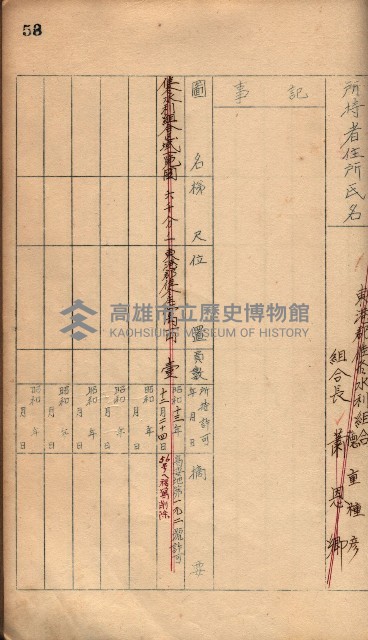 53
所持者住所氏名
東港郡佳冬水利組合
組合長
蕭恩鄉
德重種彦
記事
圖名
梯尺
位置
員數
所持許可年月日
摘要
佳冬水利組合區域圖
六千分一
東港郡佳冬庄內
壹
昭和十三年十二月二十四日
高要地第一九二號許可
昭和 年 月 日
昭和 年 月 日
昭和 年 月 日
昭和 年 月 日
昭和 年 月 日
高雄市立歷史博物館
KAOHSIUNG MUSEUM OF HISTORY